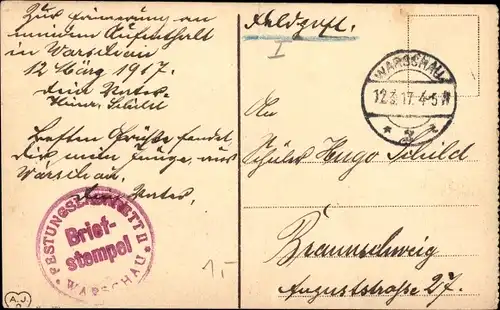 Zur Erinnerung an
meinen Aufenthalt
in Warschau
12 März 1917.
Dein Vater
Heinr. Schild
Besten Gruß sendet
Dir mein Junge, aus
Warschau.
Dein Vater.
FESTUNGS II
Brief-
stempel
* WARSCHAU *
1,-
A.J.
Feldpost.
I
WARSCHAU
12.3.17. 4-5 N
An
Schüler Hugo Schild
Braunschweig
Auguststraße 27.